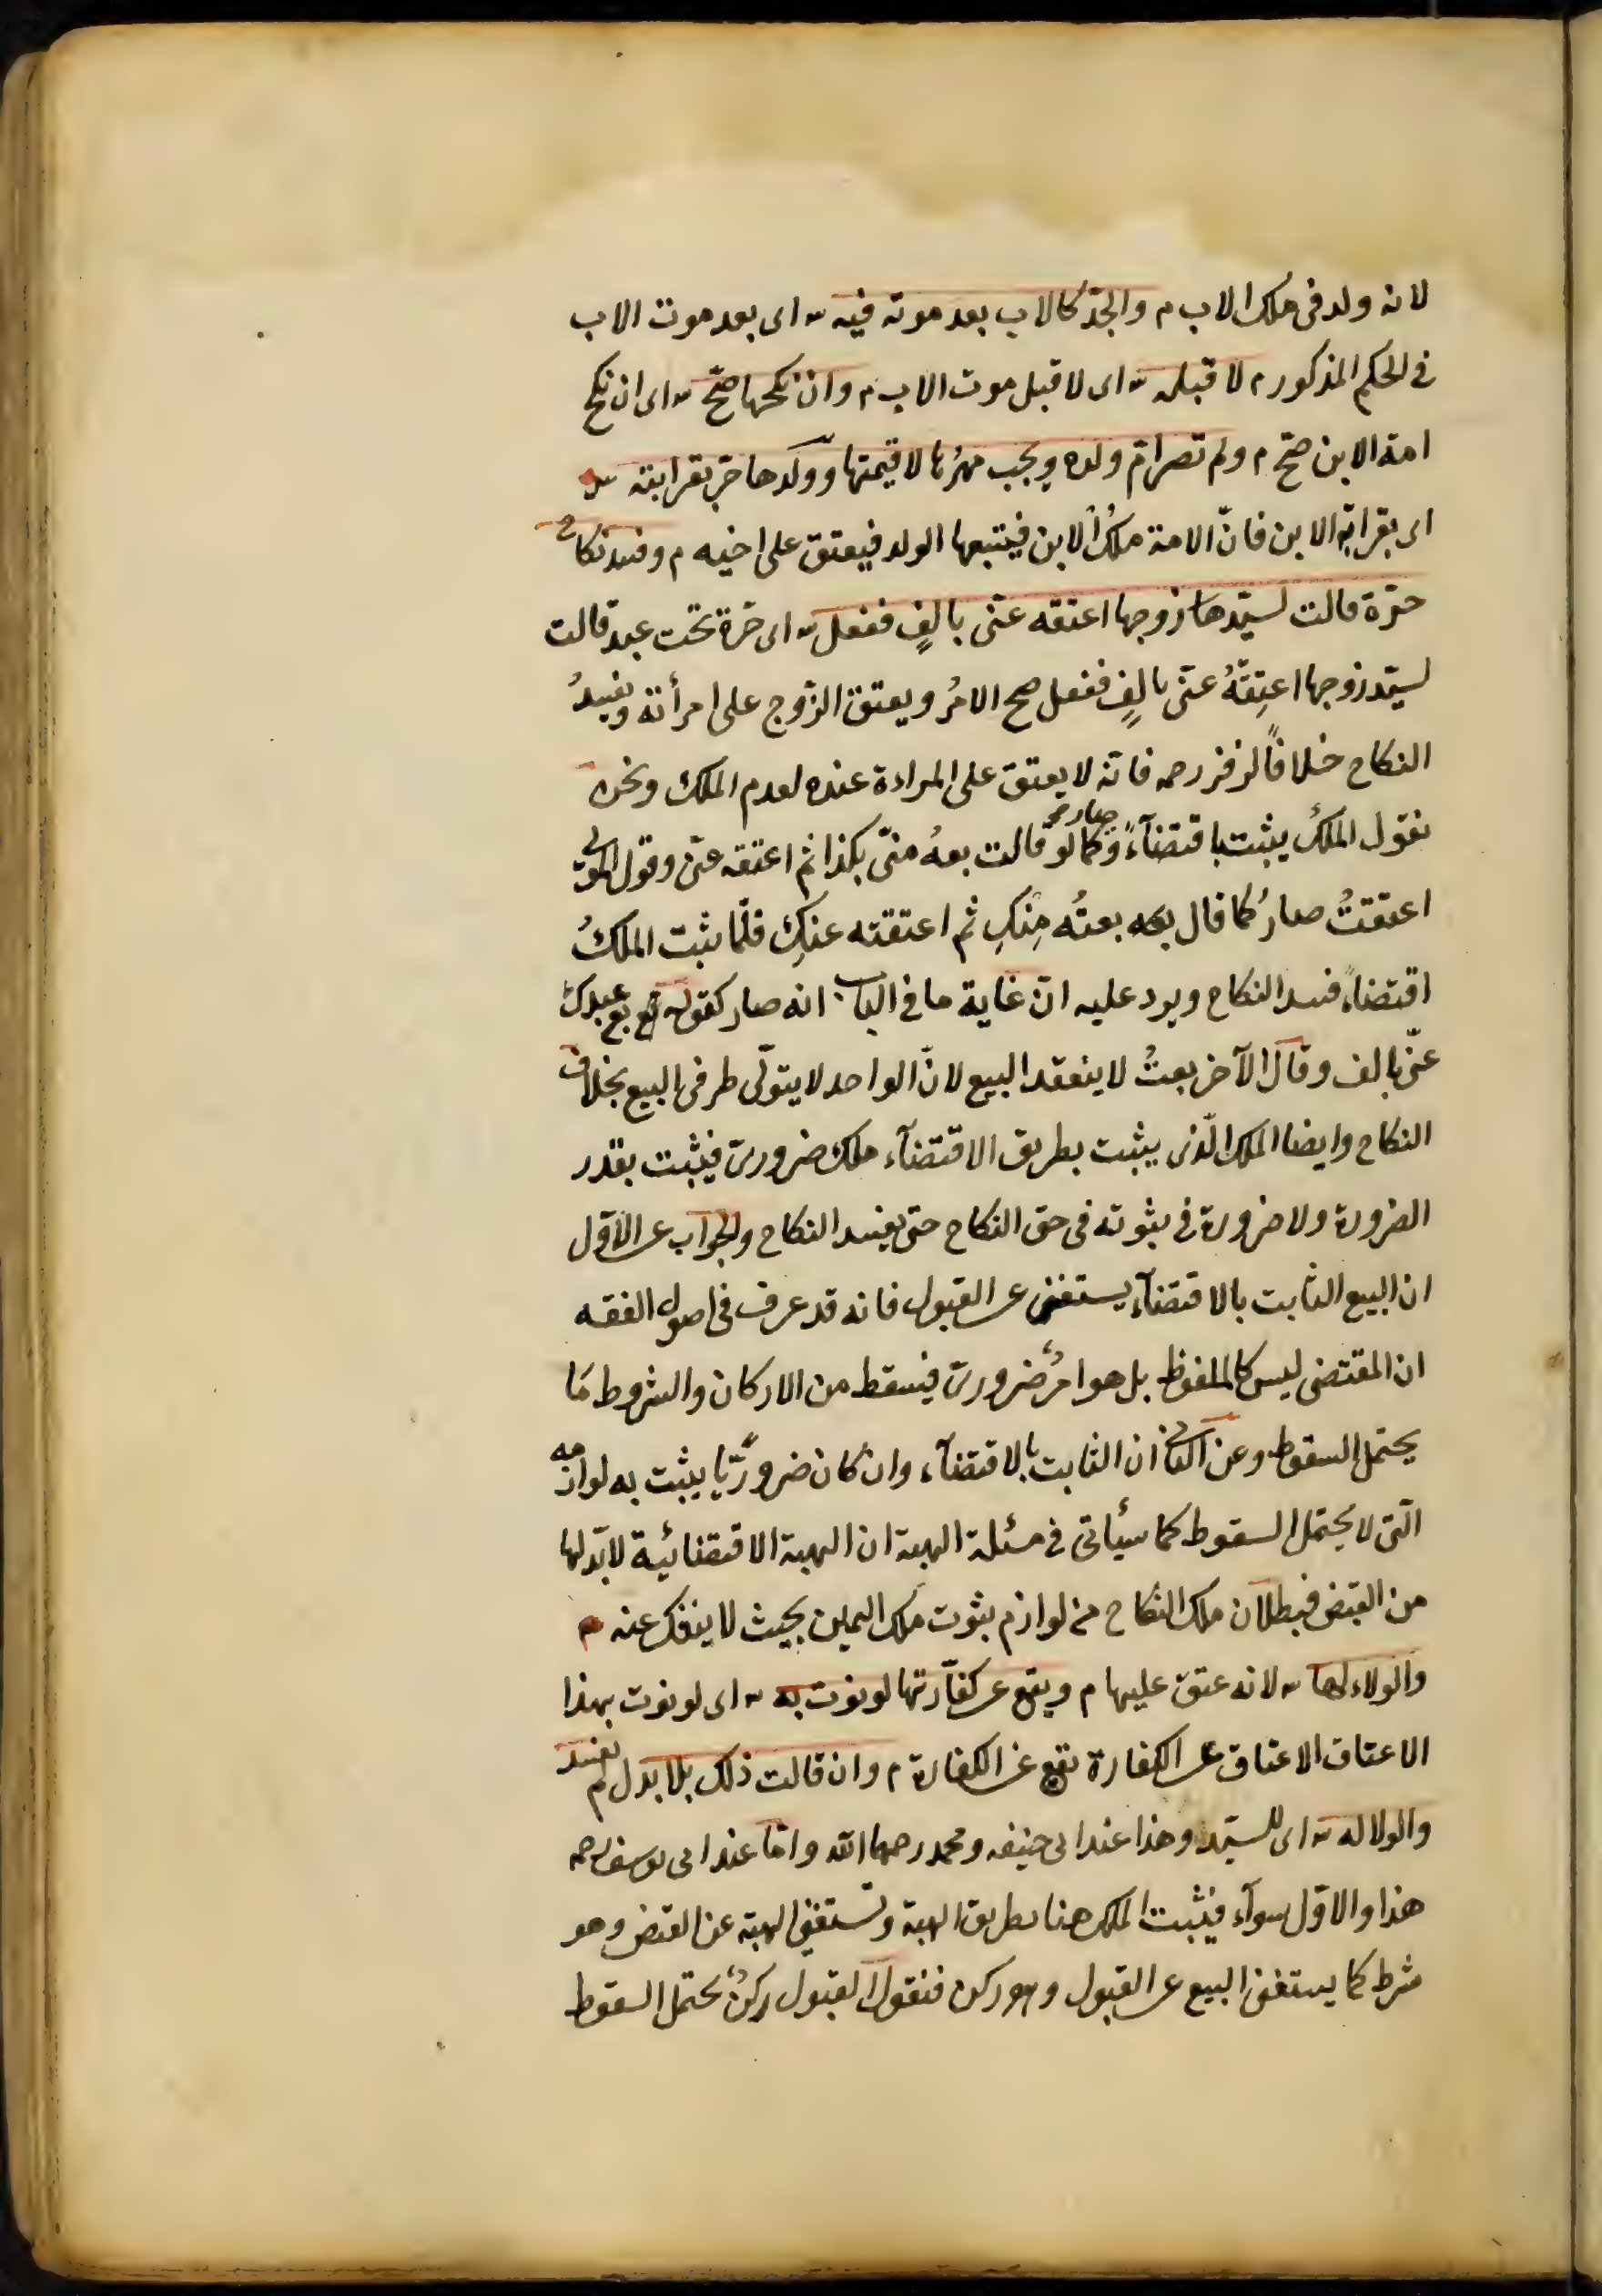 لانه ولد فى ملك الاب م والجدّ كالاب بعد موته فيه ش اى بعد موت الاب
فى الحكم المذكور م لا قبله ش اى لا قبل موت الاب م وان نكحها صحّ ش اى ان نكح
امة الابن صحّ م ولم تصر امّ ولده ويجب مهرُها لا قيمتها وولدها حرّ بقرابته ش
اى بقرابة الابن فانّ الامة ملكُ الابن فيتبعها الولد فيعتق على اخيه م وفسد نكاح
حرّة قالت لسيّد زوجها اعتقه عنّى بالفٍ ففعل ش اى حرّة تحت عبد قالت
لسيّد زوجها اعتِقهُ عنّى بالفٍ ففعل صح الامرُ ويعتق الزّوج على امرأته ويفسدُ
النكاح خلافًا لزفر رحمه فانّه لا يعتق على المراءة عنده لعدم الملك ونحن
نقول الملكُ يثبت اقتضآءً وصار كما لو قالت بعهُ منّى بكذا ثم اعتقه عنّى وقول المولى
اعتقتُ صار كما قال بعته مِنكِ ثم اعتقته عنكِ فلمّا يثبت الملكُ
اقتضاءً فسد النكاح ويرد عليه انّ غاية ما فى الباب انه صار كقوله بع عبدك
عنّى بالف وقال الآخر بعتُ لا ينعقد البيع لانّ الواحد لا يتولّى طرفى البيع بخلاف
النكاح وايضا الملك الّذى يثبت بطريق الاقتضآء ملك ضرورىّ فيثبت بقدر
الضرورة ولا ضرورة فى ثبوته فى حق النكاح حتى يفسد النكاح والجواب عن الاوّل
ان البيع الثابت بالاقتضآء يستغنى عن القبول فانه قد عرف فى اصول الفقه
ان المقتضى ليس كالملفوظ بل هو امرٌ ضرورىّ فيسقط من الاركان والشروط مَا
يحتمل السقوط وعن الثانى ان الثابت بالاقتضآء وان كان ضروريًّا يثبت به لوازمه
الّتى لا يحتمل السقوط كما سيأتى فى مسئلة الهبة ان الهبة الاقتضائية لا بدّ لها
من القبض فبطلان ملك النكاح من لوازم ثبوت ملك اليمين بحيث لا ينفك عنه م
والولاء لها ش لانه عتق عليها م ويقع عن كفّارتها لو نوت به ش اى لو نوت بهذا
الاعتاق الاعتاق عن الكفارة يقع عن الكفارة م وان قالت ذلك بلا بدل لم يفسد
والولا له ش اى للسيّد وهذا عند ابى حنيفه ومحمد رحمهما الله وامّا عند ابى يوسف رحمه
هذا والاوّل سوآء فيثبت الملك هنا بطريق الهبة وتستغنى الهبة عن القبض وهو
شرط كما يستغنى البيع عن القبول وهو ركن فنقول القبول ركنٌ يحتمل السقوط